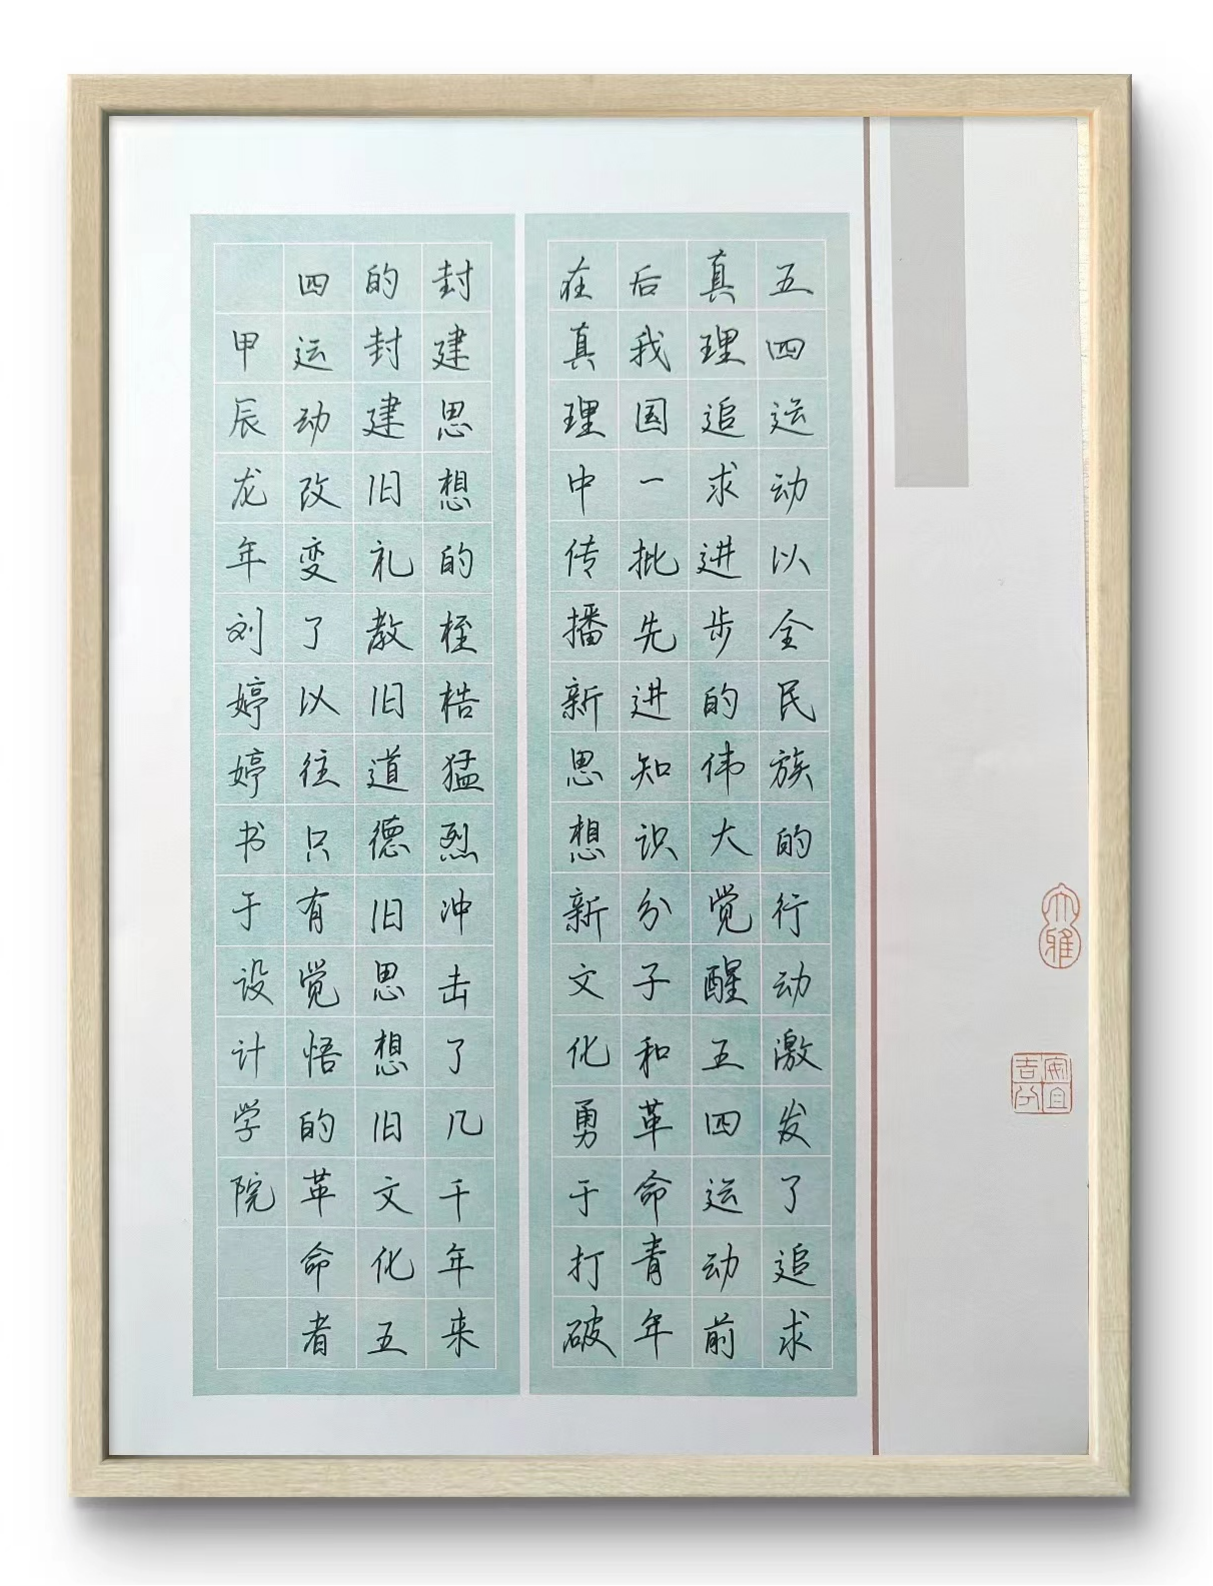 五四运动以全民族的行动激发了追求
真理追求进步的伟大觉醒五四运动前
后我国一批先进知识分子和革命青年
在真理中传播新思想新文化勇于打破
封建思想的桎梏猛烈冲击了几千年来
的封建旧礼教旧道德旧思想旧文化五
四运动改变了以往只有觉悟的革命者
甲辰龙年刘婷婷书于设计学院
大雅